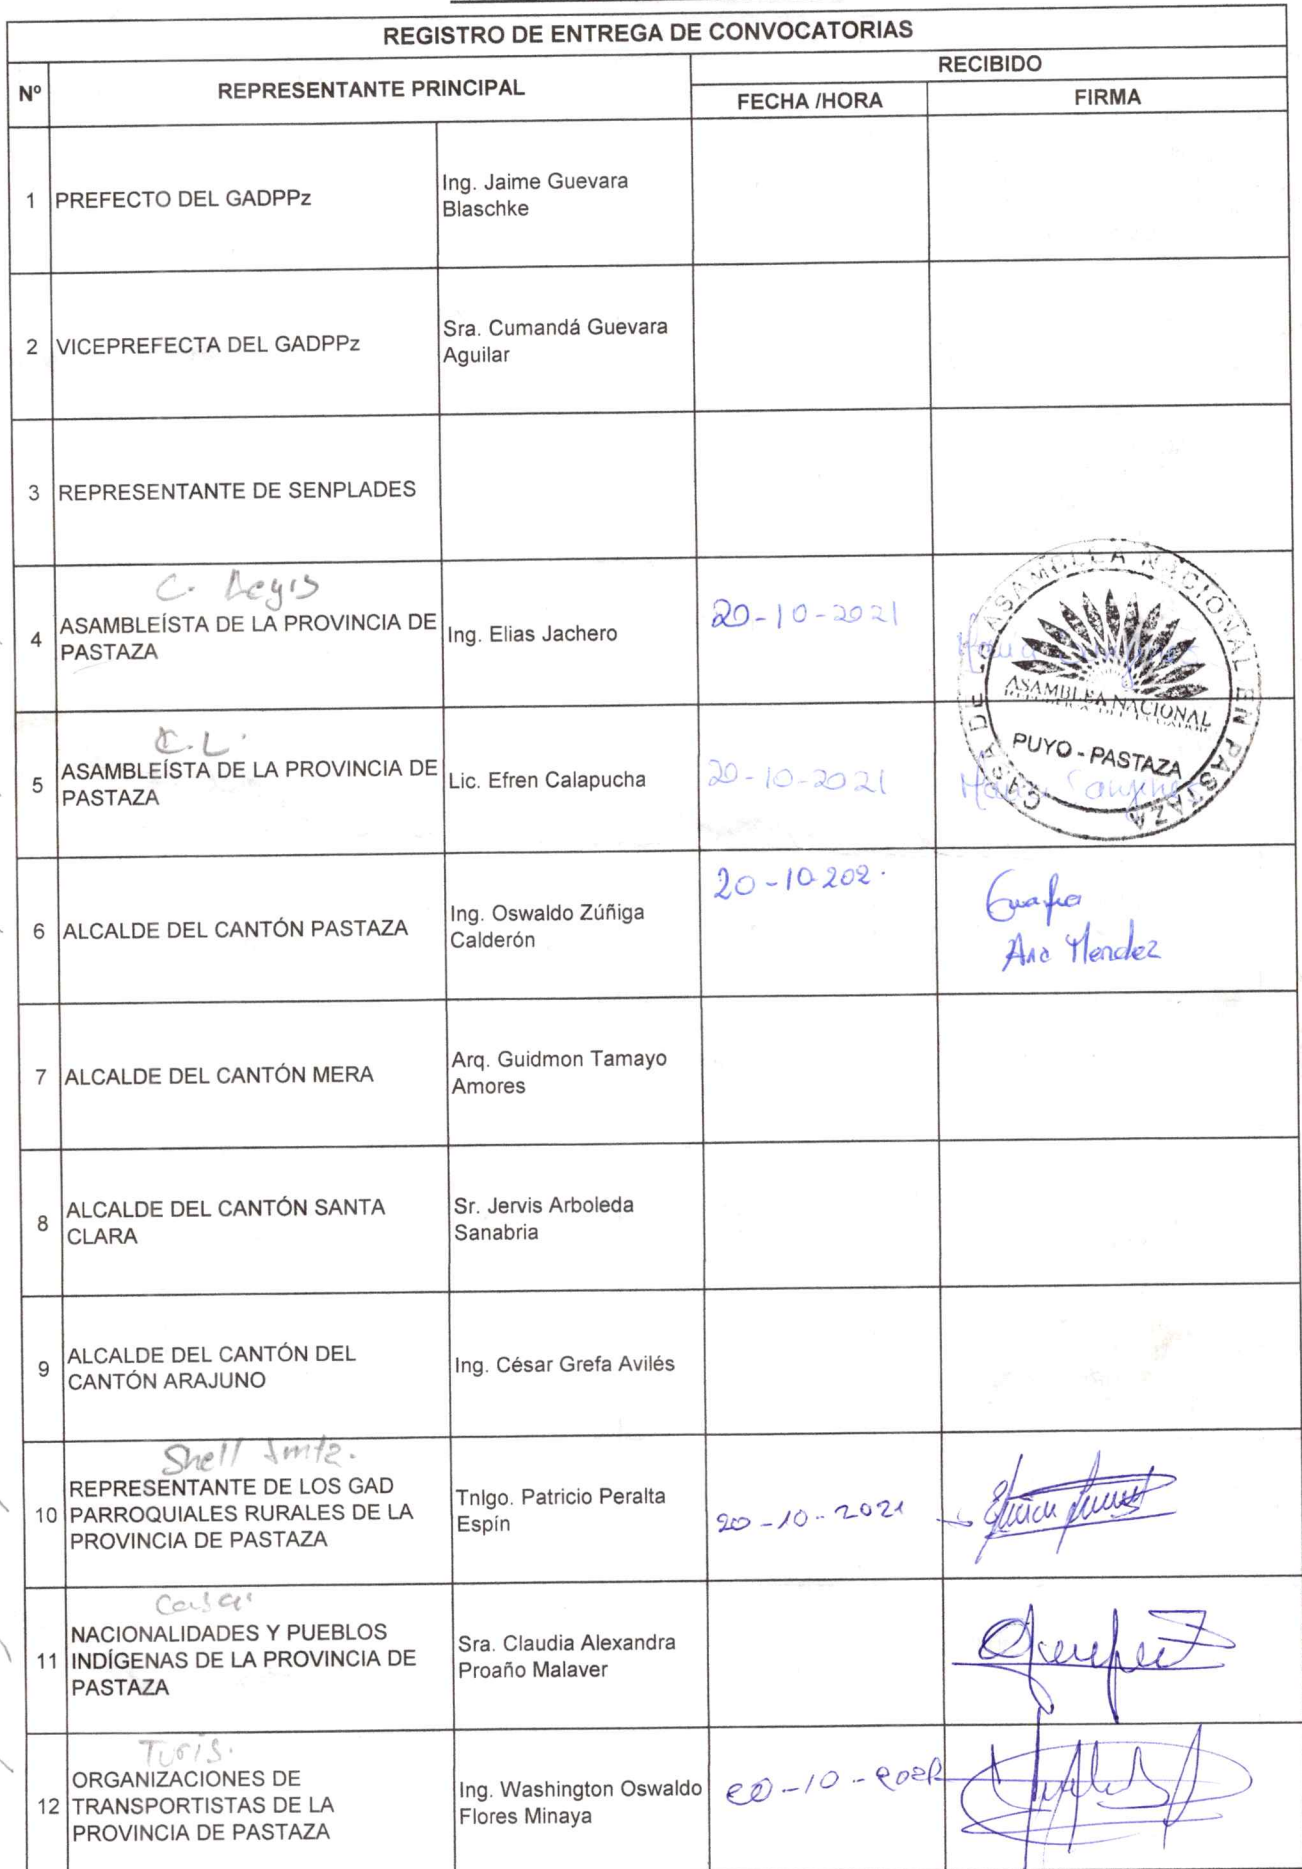 REGISTRO DE ENTREGA DE CONVOCATORIAS
Nº
REPRESENTANTE PRINCIPAL
RECIBIDO
FECHA /HORA
FIRMA
1
PREFECTO DEL GADPPz
Ing. Jaime Guevara
Blaschke
2
VICEPREFECTA DEL GADPPz
Sra. Cumandá Guevara
Aguilar
3
REPRESENTANTE DE SENPLADES
C. Legis
4
ASAMBLEÍSTA DE LA PROVINCIA DE
PASTAZA
Ing. Elias Jachero
20-10-2021
CASA DE LA ASAMBLEA NACIONAL EN PASTAZA
ASAMBLEA NACIONAL
REPÚBLICA DEL ECUADOR
PUYO - PASTAZA
C.L.
5
ASAMBLEÍSTA DE LA PROVINCIA DE
PASTAZA
Lic. Efren Calapucha
20-10-2021
6
ALCALDE DEL CANTÓN PASTAZA
Ing. Oswaldo Zúñiga
Calderón
20-10-202.
Ana Mendez
7
ALCALDE DEL CANTÓN MERA
Arq. Guidmon Tamayo
Amores
8
ALCALDE DEL CANTÓN SANTA
CLARA
Sr. Jervis Arboleda
Sanabria
9
ALCALDE DEL CANTÓN DEL
CANTÓN ARAJUNO
Ing. César Grefa Avilés
Shell
10
REPRESENTANTE DE LOS GAD
PARROQUIALES RURALES DE LA
PROVINCIA DE PASTAZA
Tnlgo. Patricio Peralta
Espín
20-10-2021
Casa
11
NACIONALIDADES Y PUEBLOS
INDÍGENAS DE LA PROVINCIA DE
PASTAZA
Sra. Claudia Alexandra
Proaño Malaver
Turis.
12
ORGANIZACIONES DE
TRANSPORTISTAS DE LA
PROVINCIA DE PASTAZA
Ing. Washington Oswaldo
Flores Minaya
20-10-2021